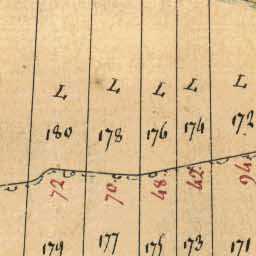 L L L L L
180 178 176 174 172
72 70 48 42 94
179 177 175 173 171